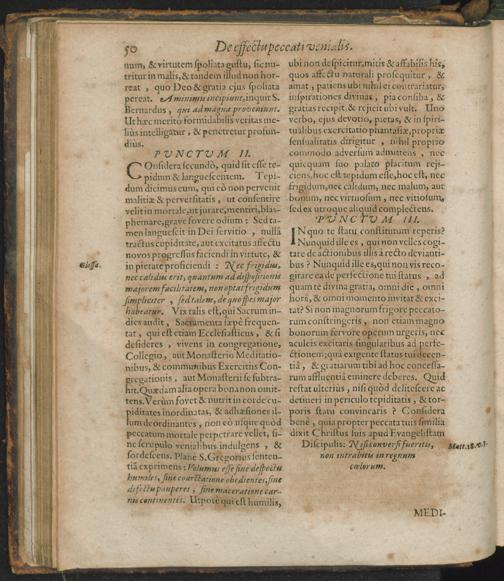 50 De effectu peccati venialis.
num, & virtutem spoliata gustu, sic nu-
tritur in malis, & tandem illud non hor-
reat , quo Deo & gratia ejus spoliata
pereat. A minimis incipiunt, inquit S.
Bernardus , qui ad magna proveniunt.
Ut hæc merito formidabilis veritas me-
liùs intelligatur , & penetretur profun-
diùs.
PUNCTUM II.
COnsidera secundò, quid sit esse te-
pidum & languescentem. Tepi-
dum dicimus eum, qui eò non pervenit
malitiæ & perversitatis , ut consentire
velit in mortale, ut jurare, mentiri, blas-
phemare, grave fovere odium : Sed ta-
men languescit in Dei servitio , nullâ
tractus cupiditate, aut excitatus affectu
novos progressus faciendi in virtute, &
in pietate proficiendi : Nec frigidus,
Glossa.
nec calidus erit, quantum ad dispositionis
majorem facilitatem, non optat frigidum
simpliciter , sed talem, de quo spes major
habeatur. Vix talis est, qui Sacrum in-
dies audit , Sacramenta sæpè frequen-
tat , qui est etiam Ecclesiasticus , & si
desideres , vivens in congregatione,
Collegio, aut Monasterio Meditatio-
nibus, & communibus Exercitiis Con-
gregationis , aut Monasterii se subtra-
hit. Quædam alia opera bona non omit-
tens. Verùm fovet & nutrit in corde cu-
piditates inordinatas, & adhæsiones il-
lum deordinantes , non eò usque quòd
peccatum mortale perpetrare vellet, si-
ne scrupulo venialibus indulgens , &
sordescens. Plane S. Gregorius senten-
tiã exprimens : Volumus esse sine despectu
humiles, sine coarctatione obedientes, sine
defectu pauperes , sine maceratione car-
nis continentes. Utpotè qui est humilis,
ubi non despicitur, mitis & affabilis his,
quos affectu naturali prosequitur , &
amat , patiens ubi nihil ei contrariatur,
inspirationes divinas , pia consilia , &
gratias recipit & rejicit ubi vult. Uno
verbo, ejus devotio, pietas, & in spiri-
tualibus exercitatio phantasiæ, propriæ
sensualitatis dirigitur , nihil proprio
commodo adversum admittens , nec
quicquam suo palato placitum reji-
ciens, hoc est tepidum esse, hoc est, nec
frigidum, nec calidum, nec malum, aut
bonum, nec virtuosum , nec vitiosum,
sed ex utroque aliquid complectens.
PUNCTUM III.
IN quo te statu constitutum reperis?
Nunquid ille es , qui non velles cogi-
tare de actionibus illis à recto devianti-
bus ? Nunquid ille es, qui non vis reco-
gitare ea de perfectione tui status , ad
quam te divina gratia, omni die , omni
horâ, & omni momento invitat & exci-
tat? Si non magnorum frigore peccato-
rum constringeris , non etiam magno
bonorum fervore operum urgeris, nec
aculeis excitaris singularibus ad perfe-
ctionem; quâ exigente status tui decen-
tiâ , & gratiarum tibi ad hoc concessa-
rum affluentiâ eminere deberes. Quid
restat ulteriùs , nisi quòd delitescere ac
detineri in periculo tepiditatis , & tor-
poris statu convincaris ? Considera
benè , quia propter peccata tuis similia
dixit Christus suis apud Evangelistam
Discipulis: Nisi conversi fueritis,
Matt. 18. v. 3.
non intrabitis in regnum
cælorum.
MEDI-